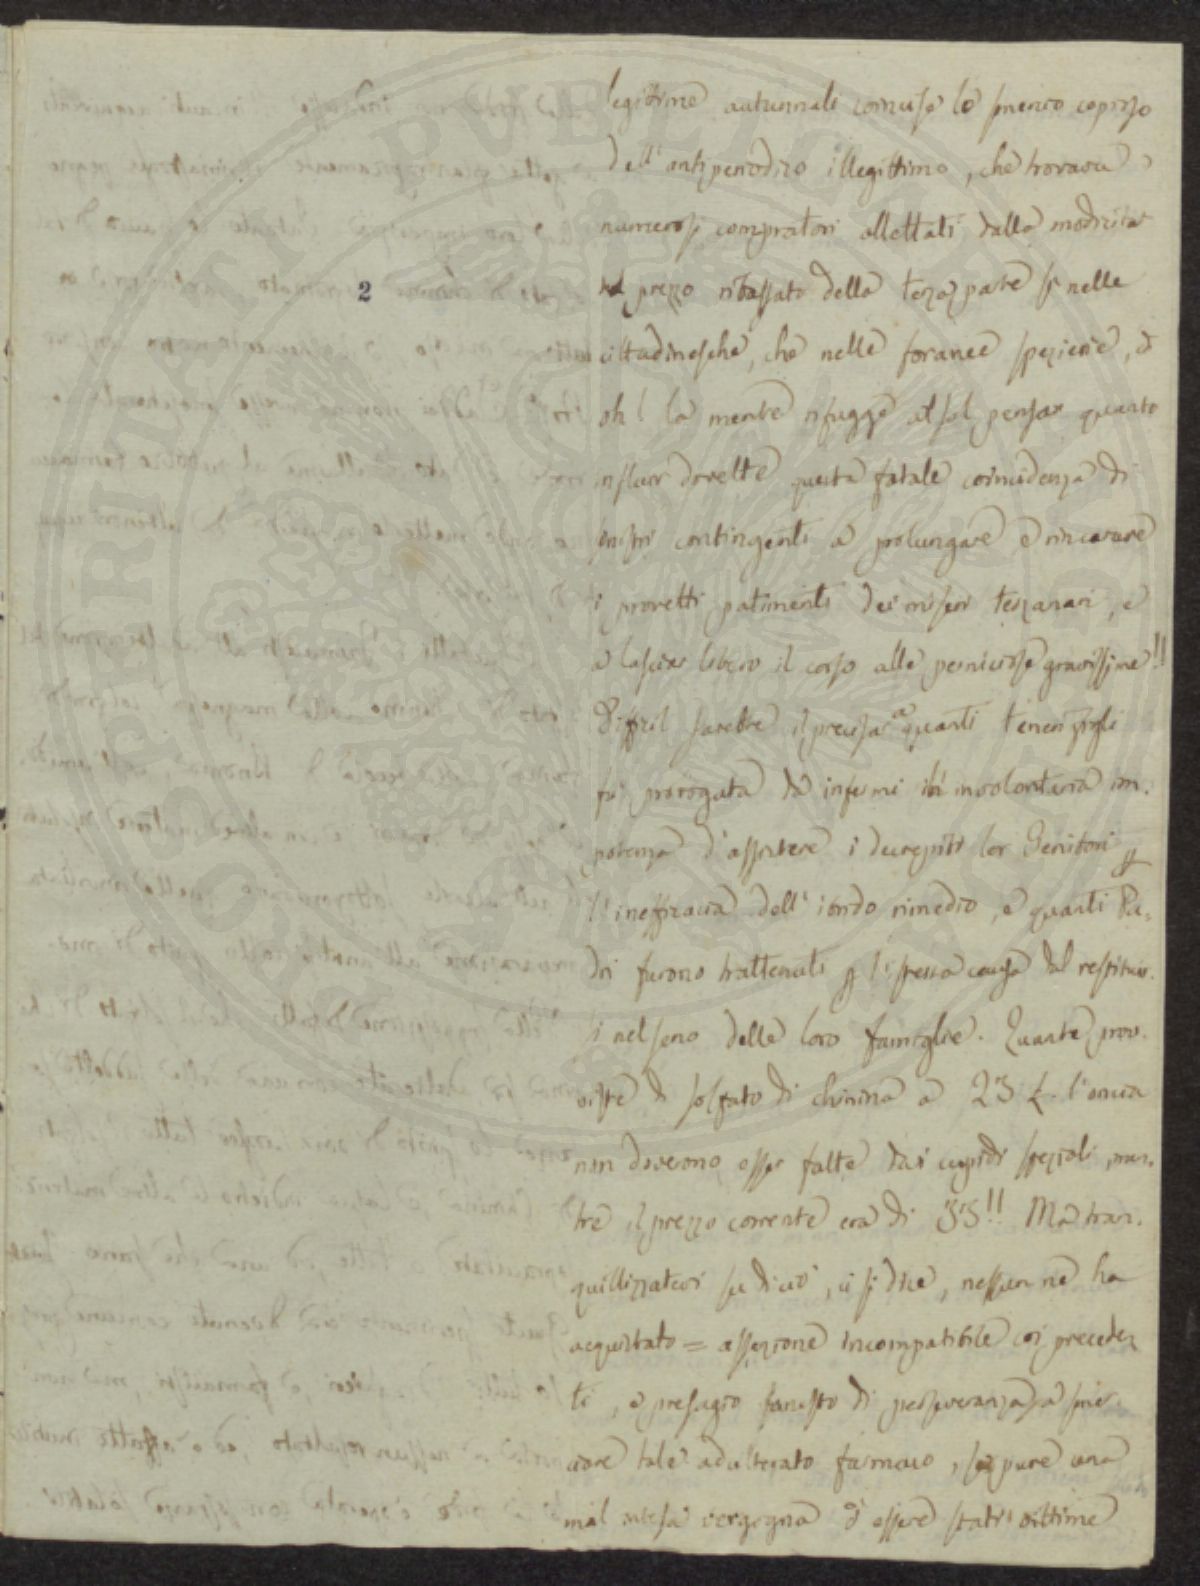 legittime autunnali cominciò lo smercio copioso
dell' antiperiodico illegittimo, che trovava
numerosi compratori allettati dalla modicità
del prezzo ribassato della terza parte sì nelle
2
cittadinesche, che nelle foranee spezierie, ed
oh! la mente rifugge al sol pensar quanto
influir dovette questa fatale coincidenza di
sinistri contingenti a prolungare e rincarare
i provetti patimenti dei miseri terzanari, e
a lasciar libero il corso alle perniciose gravissime!!
Difficil sarebbe il precisar a quanti teneri figli
fu prorogata da infermi involontaria im-
potenza d'assistere i decrepiti lor Genitori p
l'inefficacia dell' ibrido rimedio, e quanti Pa-
dri furono trattenuti p l'istessa causa dal restituir-
si nel seno delle loro famiglie. Quante prov-
viste di solfato di chinina a 23 £. l'oncia
non dovevono esser fatte dai cupidi speziali, men-
tre il prezzo corrente era di 35!! Ma tran-
quillizzatevi su di ciò, ci si dice, nessun ne ha
acquistato = asserzione incompatibile coi preceden
ti, e presagio funesto di perseveranza a smer-
ciare tale adulterato farmaco, seppure una
mal intesa vergogna d'essere stati vittime